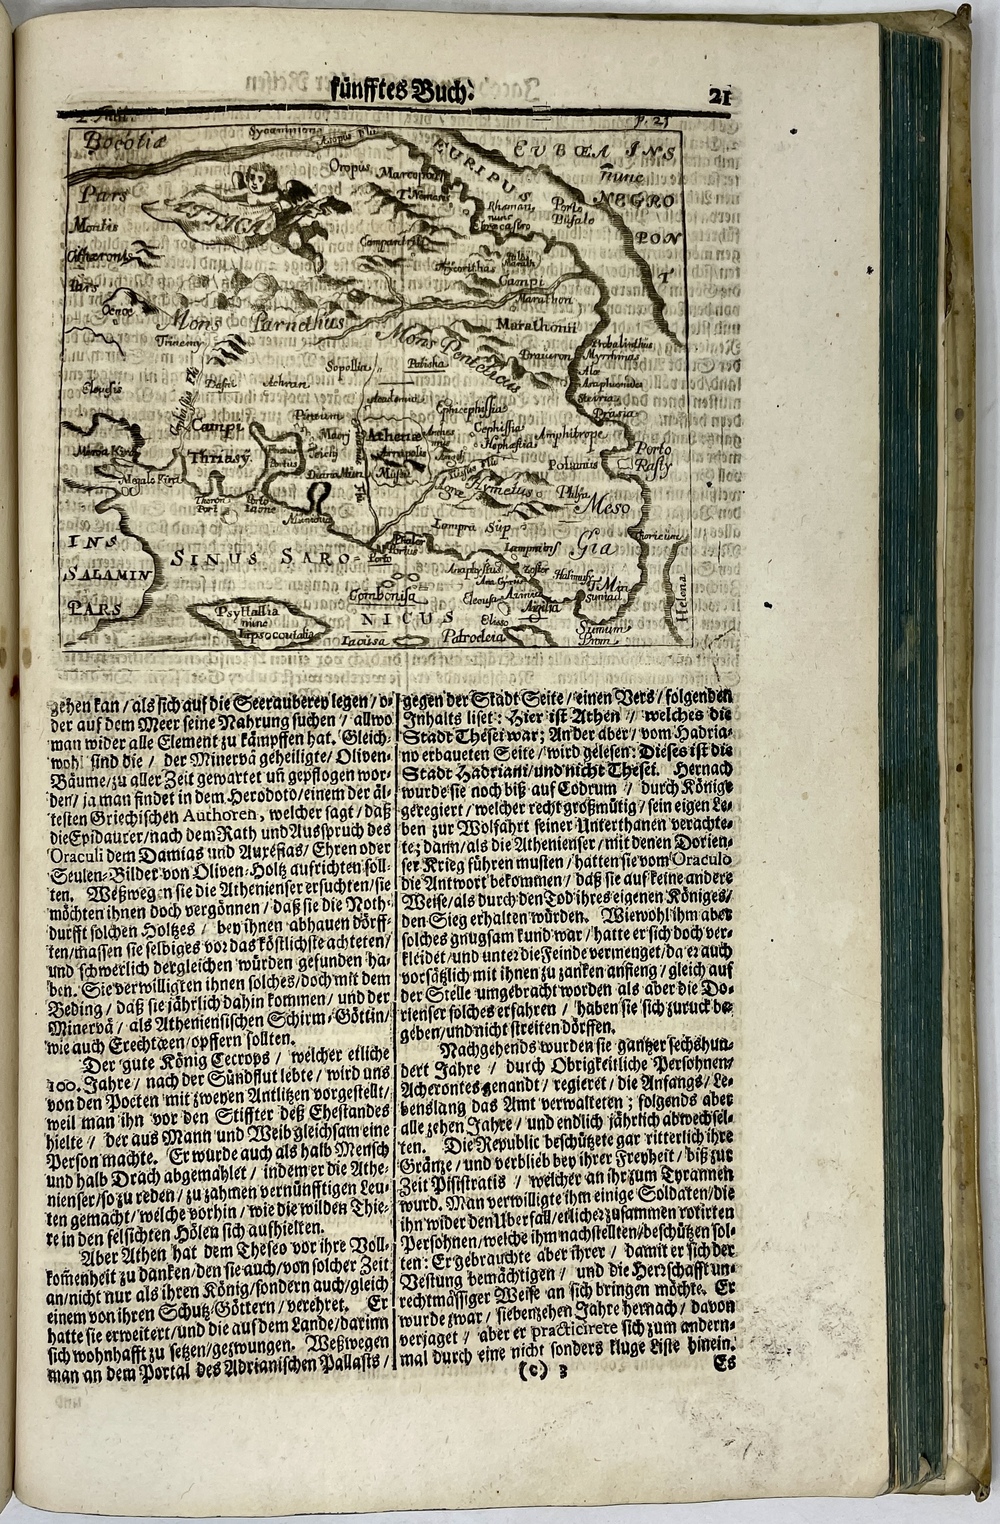 fünfftes Buch.
21
p. 21
Boeotiæ
Sycaminione
Asopus flu
EURIPUS
EUBŒA INS
nunc
NEGRO
PON
T
Oropus
Marcopoli
Rhamus
nunc
Ebreocastro
Porto
Bufalo
Pars
Montis
Pars
ATTICA
Campi
Marathon
Oenoe
Mons Parnethus
Mons Pentelicus
Marathonii
Trinemy
Sopollia
Brauron
Probalinthus
Myrrhinus
Alæ
Araphonides
Steiria
Prasia
Eleusis
Academia
Cephissia
Amphitrope
Campi
Thriasy
Athenæ
Hephæstia
Megalo Kira
Porto
Rafty
Potamus
Hymettus
Meso
Gia
Munichia
Lampra Sup
Thoricum
INS
SALAMIN
PARS
SINUS SARO-
NICUS
Porto
Phaler
Portus
Anaphystus
Zoster
Psyttallia
nunc
Lipsocoutalia
Combonisa
Eleousa
Elisso
Lacusa
Patrocleia
Sunium
Prom
Helena
gehen kan / als sich auf die Seerauberey legen / o-
der auf dem Meer seine Nahrung suchen / allwo
man wider alle Element zu kämpffen hat. Gleich-
wohl sind die / der Minervâ geheiligte / Oliven-
Bäume / zu aller Zeit gewartet uñ gepflogen wor-
den / ja man findet in dem Herodoto / einem der äl-
testen Griechischen Authoren, welcher sagt / daß
die Epidaurer / nach dem Rath und Ausspruch des
Oraculi dem Damias und Auxesias / Ehren oder
Seulen-Bilder von Oliven-Holtz aufrichten soll-
ten. Weßwegen sie die Athenienser ersuchten / sie
möchten ihnen doch vergönnen / daß sie die Noth-
durfft solchen Holtzes / bey ihnen abhauen dörff-
ten / massen sie selbiges vor das köstlichste achteten /
und schwerlich dergleichen würden gefunden ha-
ben. Sie verwilligten ihnen solches / doch mit dem
Beding / daß sie jährlich dahin kommen / und der
Minervâ / als Atheniensischen Schirm-Göttin /
wie auch Erechtæen / opffern sollten.
Der gute König Cecrops / welcher etliche
100. Jahre / nach der Sündflut lebte / wird uns
von den Poeten mit zweyen Antlitzen vorgestellt /
weil man ihn vor den Stiffter deß Ehestandes
hielte / der aus Mann und Weib gleichsam eine
Person machte. Er wurde auch als halb Mensch
und halb Drach abgemahlet / indem er die Athe-
nienser / so zu reden / zu zahmen vernünfftigen Leu-
ten gemacht / welche vorhin / wie die wilden Thie-
re in den felsichten Hölen sich aufhielten.
Aber Athen hat dem Theseo vor ihre Voll-
kom̃enheit zu danken / den sie auch / von solcher Zeit
an / nicht nur als ihren König / sondern auch / gleich
einem von ihren Schutz-Göttern / verehret. Er
hatte sie erweitert / und die auf dem Lande / darinn
sich wohnhafft zu setzen / gezwungen. Weßwegen
man an dem Portal des Adrianischen Pallasts /
gegen der Stadt Seite / einen Vers / folgenden
Inhalts liset: Hier ist Athen / welches die
Stadt Thesei war; An der aber / vom Hadria-
no erbaueten Seite / wird gelesen: Dieses ist die
Stadt Hadriani / und nicht Thesei. Hernach
wurde sie noch biß auf Codrum / durch Könige
geregiert / welcher recht großmütig / sein eigen Le-
ben zur Wolfahrt seiner Unterthanen verachte-
te; dann / als die Athenienser / mit denen Dorien-
ser Krieg führen musten / hatten sie vom Oraculo
die Antwort bekommen / daß sie auf keine andere
Weise / als durch den Tod ihres eigenen Königes /
den Sieg erhalten würden. Wiewohl ihm aber
solches gnugsam kund war / hatte er sich doch ver-
kleidet / und unter die Feinde vermenget / da er auch
vorsätzlich mit ihnen zu zanken anfieng / gleich auf
der Stelle umgebracht worden als aber die Do-
rienser solches erfahren / haben sie sich zuruck be-
geben / und nicht streiten dörffen.
Nachgehends wurden sie gantzer sechshun-
dert Jahre / durch Obrigkeitliche Persohnen /
Acherontes genandt / regieret / die Anfangs / Le-
benslang das Amt verwalteten; folgends aber
alle zehen Jahre / und endlich jährlich abwechsel-
ten. Die Republic beschützete gar ritterlich ihre
Gräntze / und verblieb bey ihrer Freyheit / biß zur
Zeit Pisistratis / welcher an ihr zum Tyrannen
wurd. Man verwilligte ihm einige Soldaten / die
ihn wider den Uberfall / etlicher zusammen rotirten
Persohnen / welche ihm nachstellten / beschützen sol-
ten: Er gebrauchte aber ihrer / damit er sich der
Vestung bemächtigen / und die Herrschafft un-
rechtmässiger Weise an sich bringen möchte. Er
wurde zwar / siebenzehen Jahre hernach / davon
verjaget / aber er practicirete sich zum andern-
mal durch eine nicht sonders kluge Liste hinein.
(c) 3
Es